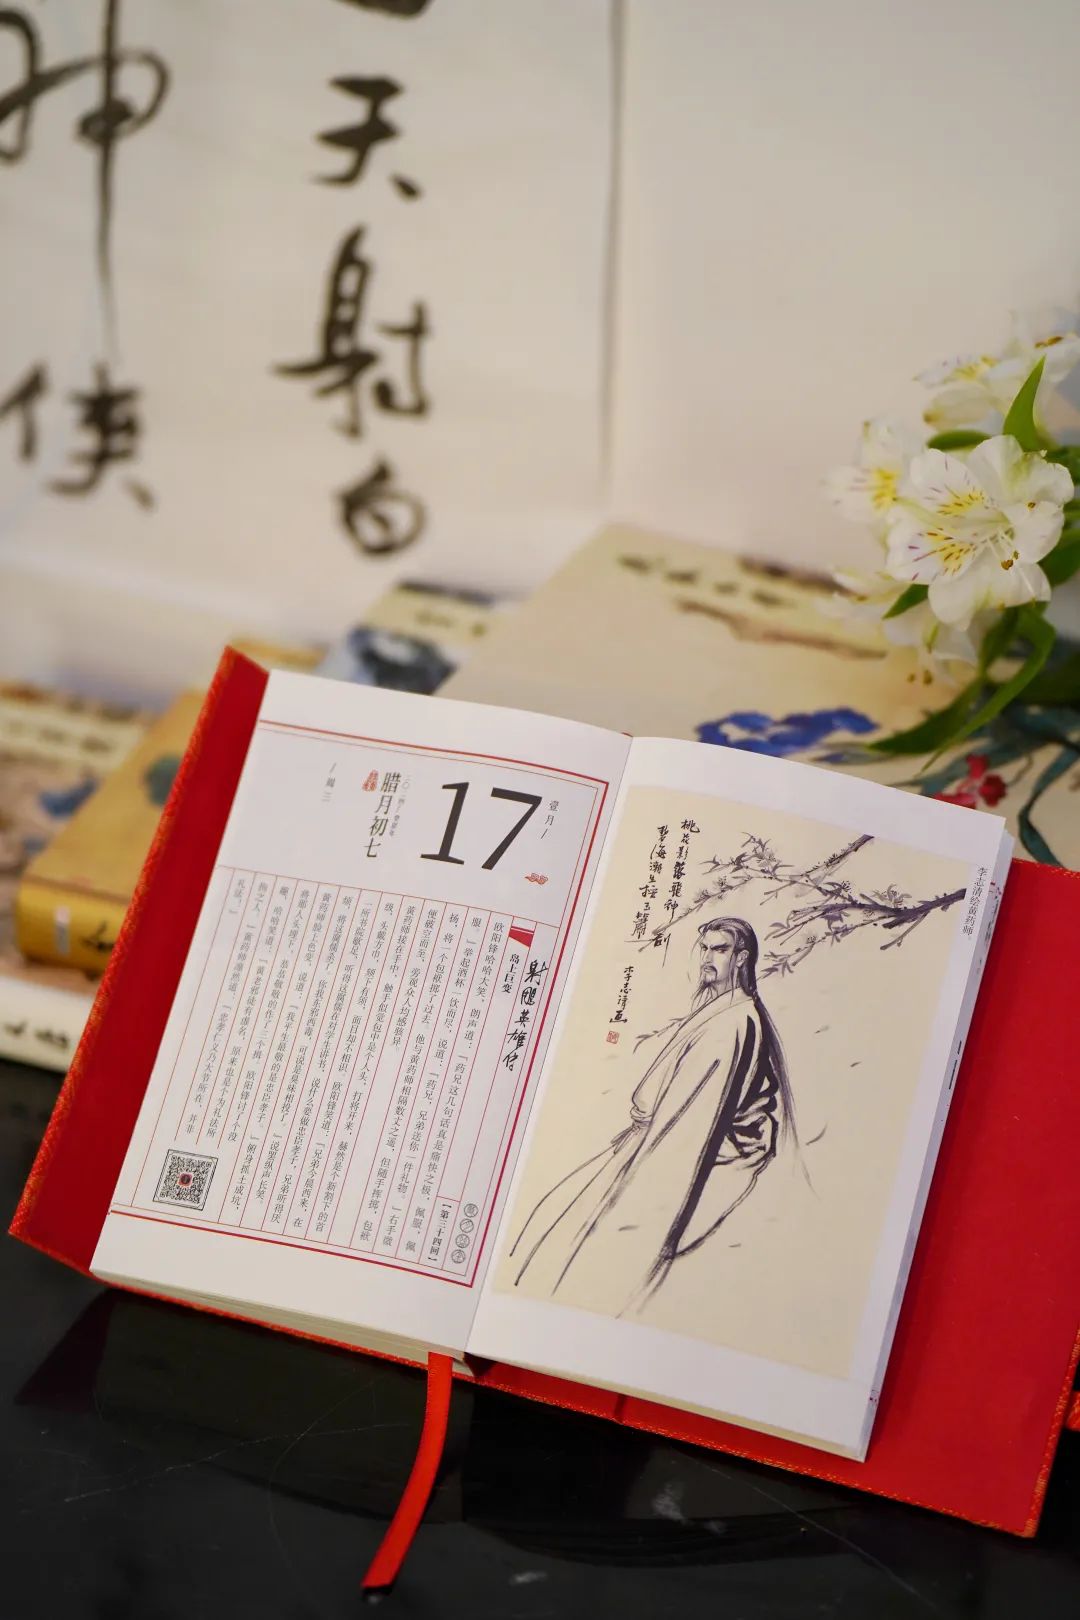 天射白
神
侠
壹月/
17
腊月初七
/周三
射雕英雄传
岛上巨变
【第三十四回】
欧阳锋哈哈大笑，朗声道：「药兄这几句话真是痛快之极，佩服，佩
服。」举起酒杯一饮而尽，说道：「药兄，兄弟送你一件礼物。」右手微
扬，将一个包袱掷了过去。他与黄药师相隔数丈之遥，但随手挥掷，包袱
便破空而至，旁观众人均感骇异。
黄药师接在手中，触手似觉包中是个人头，打将开来，赫然是个新割下的首
级，头戴方巾，颏下有须，面目却不相识。欧阳锋笑道：「兄弟今晨西来，在
一所书院歇足，听得这腐儒在对学生讲书，说什么要做忠臣孝子，兄弟听得厌
烦，将这腐儒杀了。你我东邪西毒，可说是臭味相投了。」说罢纵声长笑。
黄药师脸上色变，说道：「我平生最敬的是忠臣孝子。」俯身抓土成坑，
将那人头埋下，恭恭敬敬的作了三个揖。欧阳锋讨了个没
趣，哈哈笑道：「黄老邪徒有虚名，原来也是个为礼法所
拘之人。」黄药师凛然道：「忠孝仁义乃大节所在，并非
礼法！」
桃花影落飞神剑
碧海潮生按玉箫
李志清画
李志清绘黄药师。